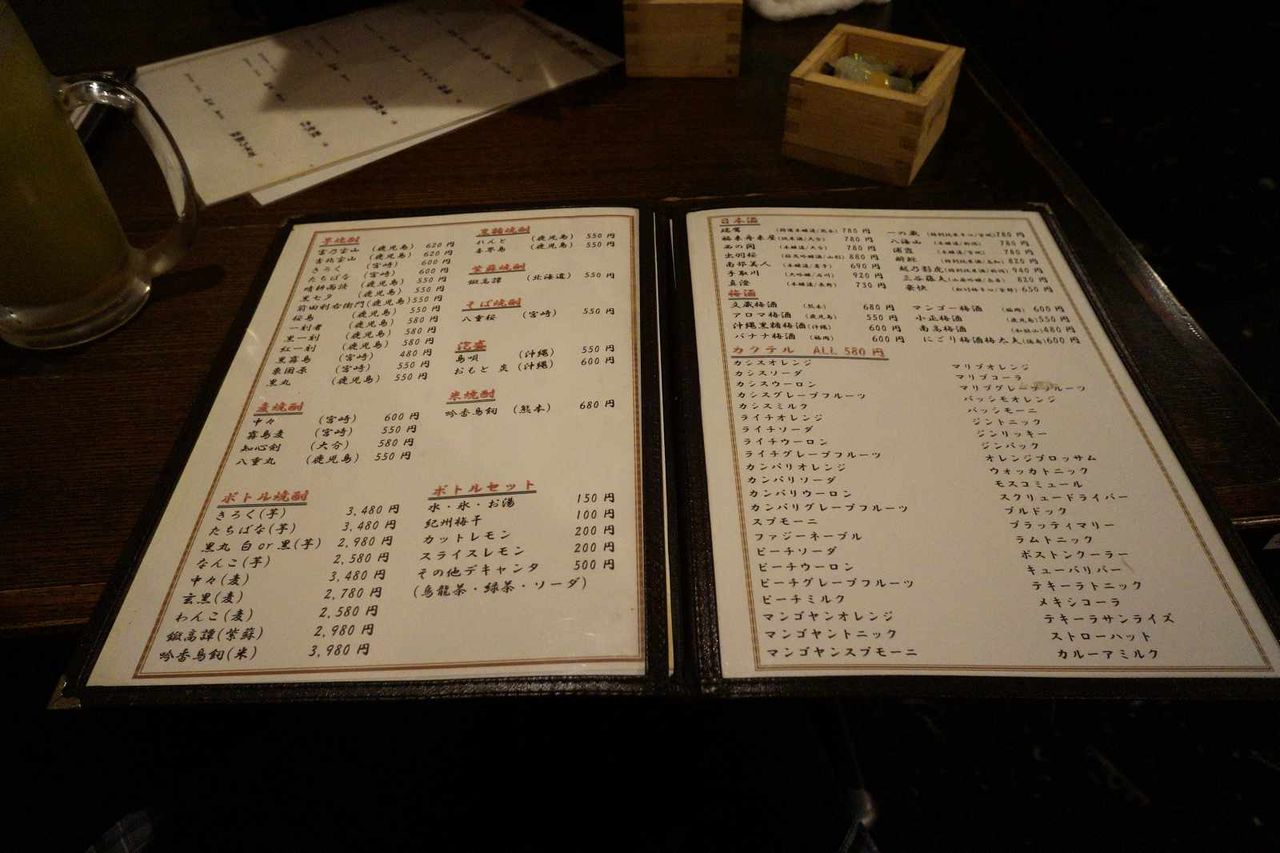 芋焼酎
富乃宝山 (鹿児島) 620 円
吉兆宝山 (鹿児島) 620 円
きろく (宮崎) 600 円
たちばな (宮崎) 600 円
晴耕雨読 (鹿児島) 550 円
黒七夕 (鹿児島) 550 円
前田利右衛門 (鹿児島) 550 円
桜島 (鹿児島) 550 円
一刻者 (鹿児島) 580 円
黒一刻 (鹿児島) 580 円
紅一刻 (鹿児島) 580 円
黒霧島 (宮崎) 480 円
東国原 (宮崎) 550 円
黒丸 (鹿児島) 550 円
麦焼酎
中々 (宮崎) 600 円
霧島麦 (宮崎) 550 円
知心剣 (大分) 580 円
八重丸 (鹿児島) 550 円
ボトル焼酎
きろく(芋) 3,480 円
たちばな(芋) 3,480 円
黒丸 白 or 黒(芋) 2,980 円
なんこ(芋) 2,580 円
中々(麦) 3,480 円
玄黒(麦) 2,780 円
わんこ(麦) 2,580 円
鍛高譚(紫蘇) 2,980 円
吟香鳥飼(米) 3,980 円
黒糖焼酎
れんと (鹿児島) 550 円
喜界島 (鹿児島) 550 円
紫蘇焼酎
鍛高譚 (北海道) 550 円
そば焼酎
八重桜 (宮崎) 550 円
泡盛
島唄 (沖縄) 550 円
おもと 炎 (沖縄) 600 円
米焼酎
吟香鳥飼 (熊本) 680 円
ボトルセット
水・氷・お湯 150 円
紀州梅干 100 円
カットレモン 200 円
スライスレモン 200 円
その他デキャンタ 500 円
(烏龍茶・緑茶・ソーダ)
日本酒
瑞鷹 780 円
福来舟来屋 780 円
西の関 (本醸造/大分) 780 円
出羽桜 880 円
南部美人 (本醸造/岩手) 690 円
手取川 (大吟醸/石川) 920 円
真澄 (本醸造/長野) 730 円
一の蔵 780 円
八海山 (本醸造/新潟) 780 円
浦霞 (本醸造/宮城) 780 円
酔鯨 820 円
越乃碧虎 940 円
三谷藤夫 820 円
豪快 650 円
梅酒
文蔵梅酒 (熊本) 680 円
アロマ梅酒 (鹿児島) 550 円
沖縄黒糖梅酒 (沖縄) 600 円
バナナ梅酒 (福岡) 600 円
マンゴー梅酒 (福岡) 600 円
小正梅酒 (鹿児島) 550 円
南高梅酒 (和歌山) 480 円
にごり梅酒梅太夫 (福岡) 600 円
カクテル ALL 580 円
カシスオレンジ
カシスソーダ
カシスウーロン
カシスグレープフルーツ
カシスミルク
ライチオレンジ
ライチソーダ
ライチウーロン
ライチグレープフルーツ
カンパリオレンジ
カンパリソーダ
カンパリウーロン
カンパリグレープフルーツ
スプモーニ
ファジーネーブル
ピーチソーダ
ピーチウーロン
ピーチグレープフルーツ
ピーチミルク
マンゴヤンオレンジ
マンゴヤントニック
マンゴヤンスプモーニ
マリブオレンジ
マリブコーラ
マリブグレープフルーツ
パッシモオレンジ
パッシモーニ
ジントニック
ジンリッキー
ジンバック
オレンジブロッサム
ウォッカトニック
モスコミュール
スクリュードライバー
ブルドック
ブラッディマリー
ラムトニック
ボストンクーラー
キューバリバー
テキーラトニック
メキシコーラ
テキーラサンライズ
ストローハット
カルーアミルク